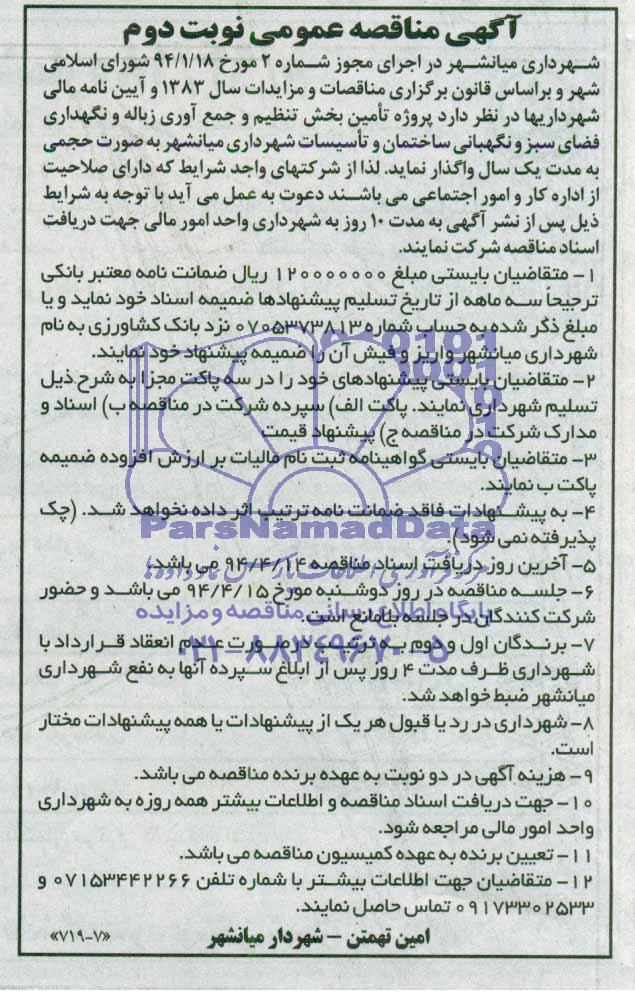 آگهی مناقصه عمومی نوبت دوم
شهرداری میانشهر در اجرای مجوز شماره ۲ مورخ ۹۴/۱/۱۸ شورای اسلامی
شهر و براساس قانون برگزاری مناقصات و مزایدات سال ۱۳۸۳ و آیین نامه مالی
شهرداریها در نظر دارد پروژه تأمین بخش تنظیم و جمع آوری زباله و نگهداری
فضای سبز و نگهبانی ساختمان و تأسیسات شهرداری میانشهر به صورت حجمی
به مدت یک سال واگذار نماید. لذا از شرکتهای واجد شرایط که دارای صلاحیت
از اداره کار و امور اجتماعی می باشند دعوت به عمل می آید با توجه به شرایط
ذیل پس از نشر آگهی به مدت ۱۰ روز به شهرداری واحد امور مالی جهت دریافت
اسناد مناقصه شرکت نمایند.
۱- متقاضیان بایستی مبلغ ۱۲۰۰۰۰۰۰۰ ریال ضمانت نامه معتبر بانکی
ترجیحاً سه ماهه از تاریخ تسلیم پیشنهادها ضمیمه اسناد خود نماید و یا
مبلغ ذکر شده به حساب شماره ۰۷۰۵۳۷۳۸۱۳ نزد بانک کشاورزی به نام
شهرداری میانشهر واریز و فیش آن را ضمیمه پیشنهاد خود نمایند.
۲- متقاضیان بایستی پیشنهادهای خود را در سه پاکت مجزا به شرح ذیل
تسلیم شهرداری نمایند. پاکت الف) سپرده شرکت در مناقصه ب) اسناد و
مدارک شرکت در مناقصه ج) پیشنهاد قیمت
۳- متقاضیان بایستی گواهینامه ثبت نام مالیات بر ارزش افزوده ضمیمه
پاکت ب نمایند.
۴- به پیشنهادات فاقد ضمانت نامه ترتیب اثر داده نخواهد شد. (چک
پذیرفته نمی شود).
ParsNamadData
۵- آخرین روز دریافت اسناد مناقصه ۹۴/۴/۱۴ می باشد.
۶- جلسه مناقصه در روز دوشنبه مورخ ۹۴/۴/۱۵ می باشد و حضور
شرکت کنندگان در جلسه بلامانع است.
پایگاه اطلاع رسانی مناقصه و مزایده
۷- برندگان اول و دوم به ترتیب در صورت عدم انعقاد قرارداد با
۰۲۱-۸۸۳۴۹۶۷۰-۵
شهرداری ظرف مدت ۴ روز پس از ابلاغ سپرده آنها به نفع شهرداری
میانشهر ضبط خواهد شد.
۸- شهرداری در رد یا قبول هر یک از پیشنهادات یا همه پیشنهادات مختار
است.
۹- هزینه آگهی در دو نوبت به عهده برنده مناقصه می باشد.
۱۰- جهت دریافت اسناد مناقصه و اطلاعات بیشتر همه روزه به شهرداری
واحد امور مالی مراجعه شود.
۱۱- تعیین برنده به عهده کمیسیون مناقصه می باشد.
۱۲- متقاضیان جهت اطلاعات بیشتر با شماره تلفن ۰۷۱۵۳۴۴۲۲۶۶ و
۰۹۱۷۳۳۰۲۵۳۳ تماس حاصل نمایند.
امین تهمتن - شهردار میانشهر
«۷۱۹-۷»